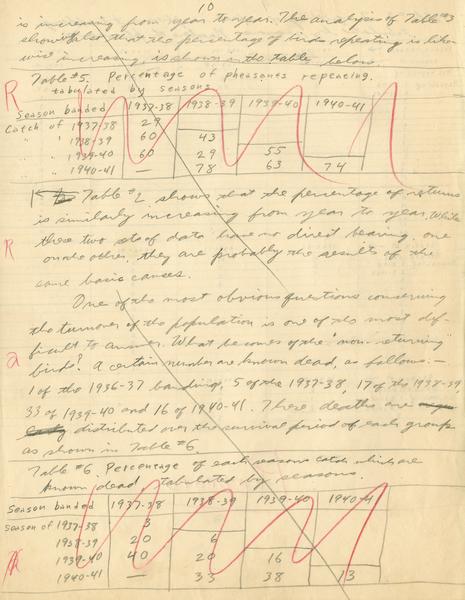 10
is increasing from year to year. The analysis of Table #3
shows also that the percentage of birds repeating is like-
wise increasing, is shown in the table below.
Table #5. Percentage of pheasants repeating.
tabulated by seasons
R
Season banded 1937-38 1938-39 1939-40 1940-41
Catch of 1937-38 29
" " 1938-39 60 43
" " 1939-40 60 29 55
" " 1940-41 — 78 63 74
Table #2 shows that the percentage of returns
is similarly increasing from year to year. While
R
these two sets of data have no direct bearing, one
on the other, they are probably the results of the
same basic causes.
One of the most obvious questions concerning
the turnover of the population is one of the most dif-
ficult to answer. What becomes of the "non-returning"
a
birds? A certain number are known dead, as follows.—
1 of the 1936-37 banding, 5 of the 1937-38, 17 of the 1938-39,
33 of 1939-40 and 16 of 1940-41. These deaths are
distributed over the survival period of each group
as shown in Table #6.
Table #6 Percentage of each seasons catch which are
known dead tabulated by seasons.
Season banded 1937-38 1938-39 1939-40 1940-41
Season of 1937-38 3
1938-39 20 6
R
1939-40 40 20 16
1940-41 — 33 38 13